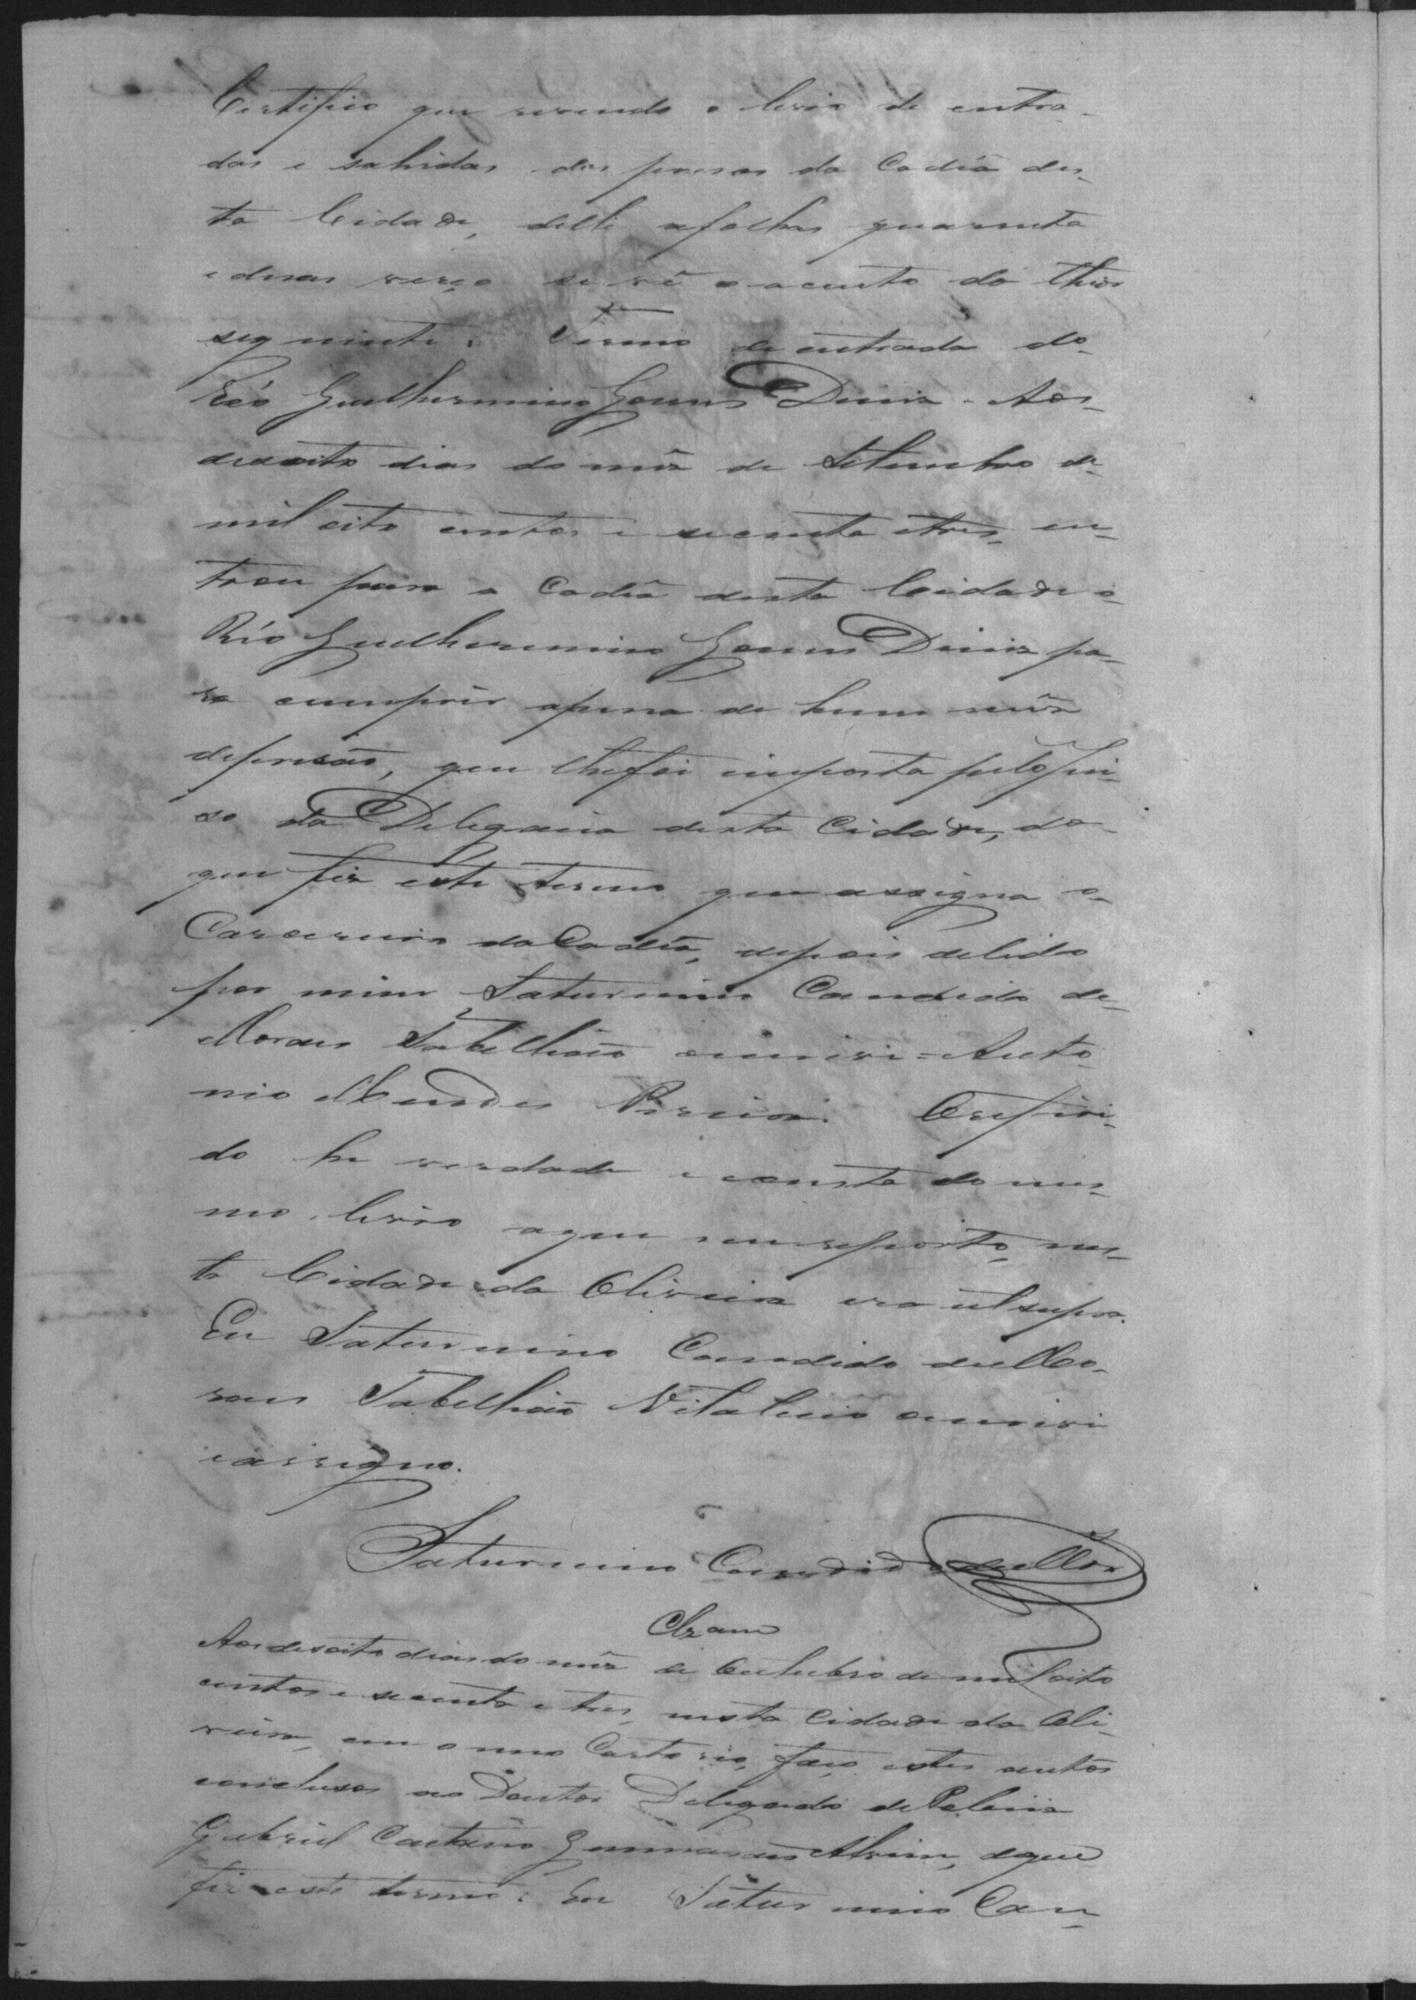 Certifico que revendo o livro de entra-
das e sahidas dos presos da Cadêa des-
ta Cidade, delle afolhas quarenta
e duas verço se vê o acento do theor
seguinte: Termo de entrada do
Réo Guilhermino Gomes Diniz - Aos
desoito dias do mêz de Setembro de
mil oito centos e secenta e tres, en-
trou para a Cadêa desta Cidade o
Réo Guilhermino Gomes Diniz pa-
ra cumprir apena de hum mêz
deprisão, que lhefoi imposta pelo Jui-
so da Delegacia desta Cidade, do
que fiz este termo que assigna o
Carcereiro da Cadêa, depois delido
por mim Saturnino Candido de
Moraes Tabelliaõ escrivi = Anto
nio Mendes Pereira. Oreferi-
do he verdade e consta do mes-
mo livro aque mereporto, nes-
ta Cidade da Oliveira era ut supra.
Eu Saturnino Candido deMo-
raes Tabelliaõ Vitalicio escrivi
e assigno.
Saturnino Candido deMor
Clzam
Aos desoito dias do mêz de Outubro de mil oito
centos e secenta e tres, nesta Cidade da Oli-
veira, em o meo Cartorio, faço estes autos
conclusos ao Doutor Delegado de Policia
Gabriel Caetano Guimaraes Alvim, deque
fiz este termo: Eu Saturnino Can-